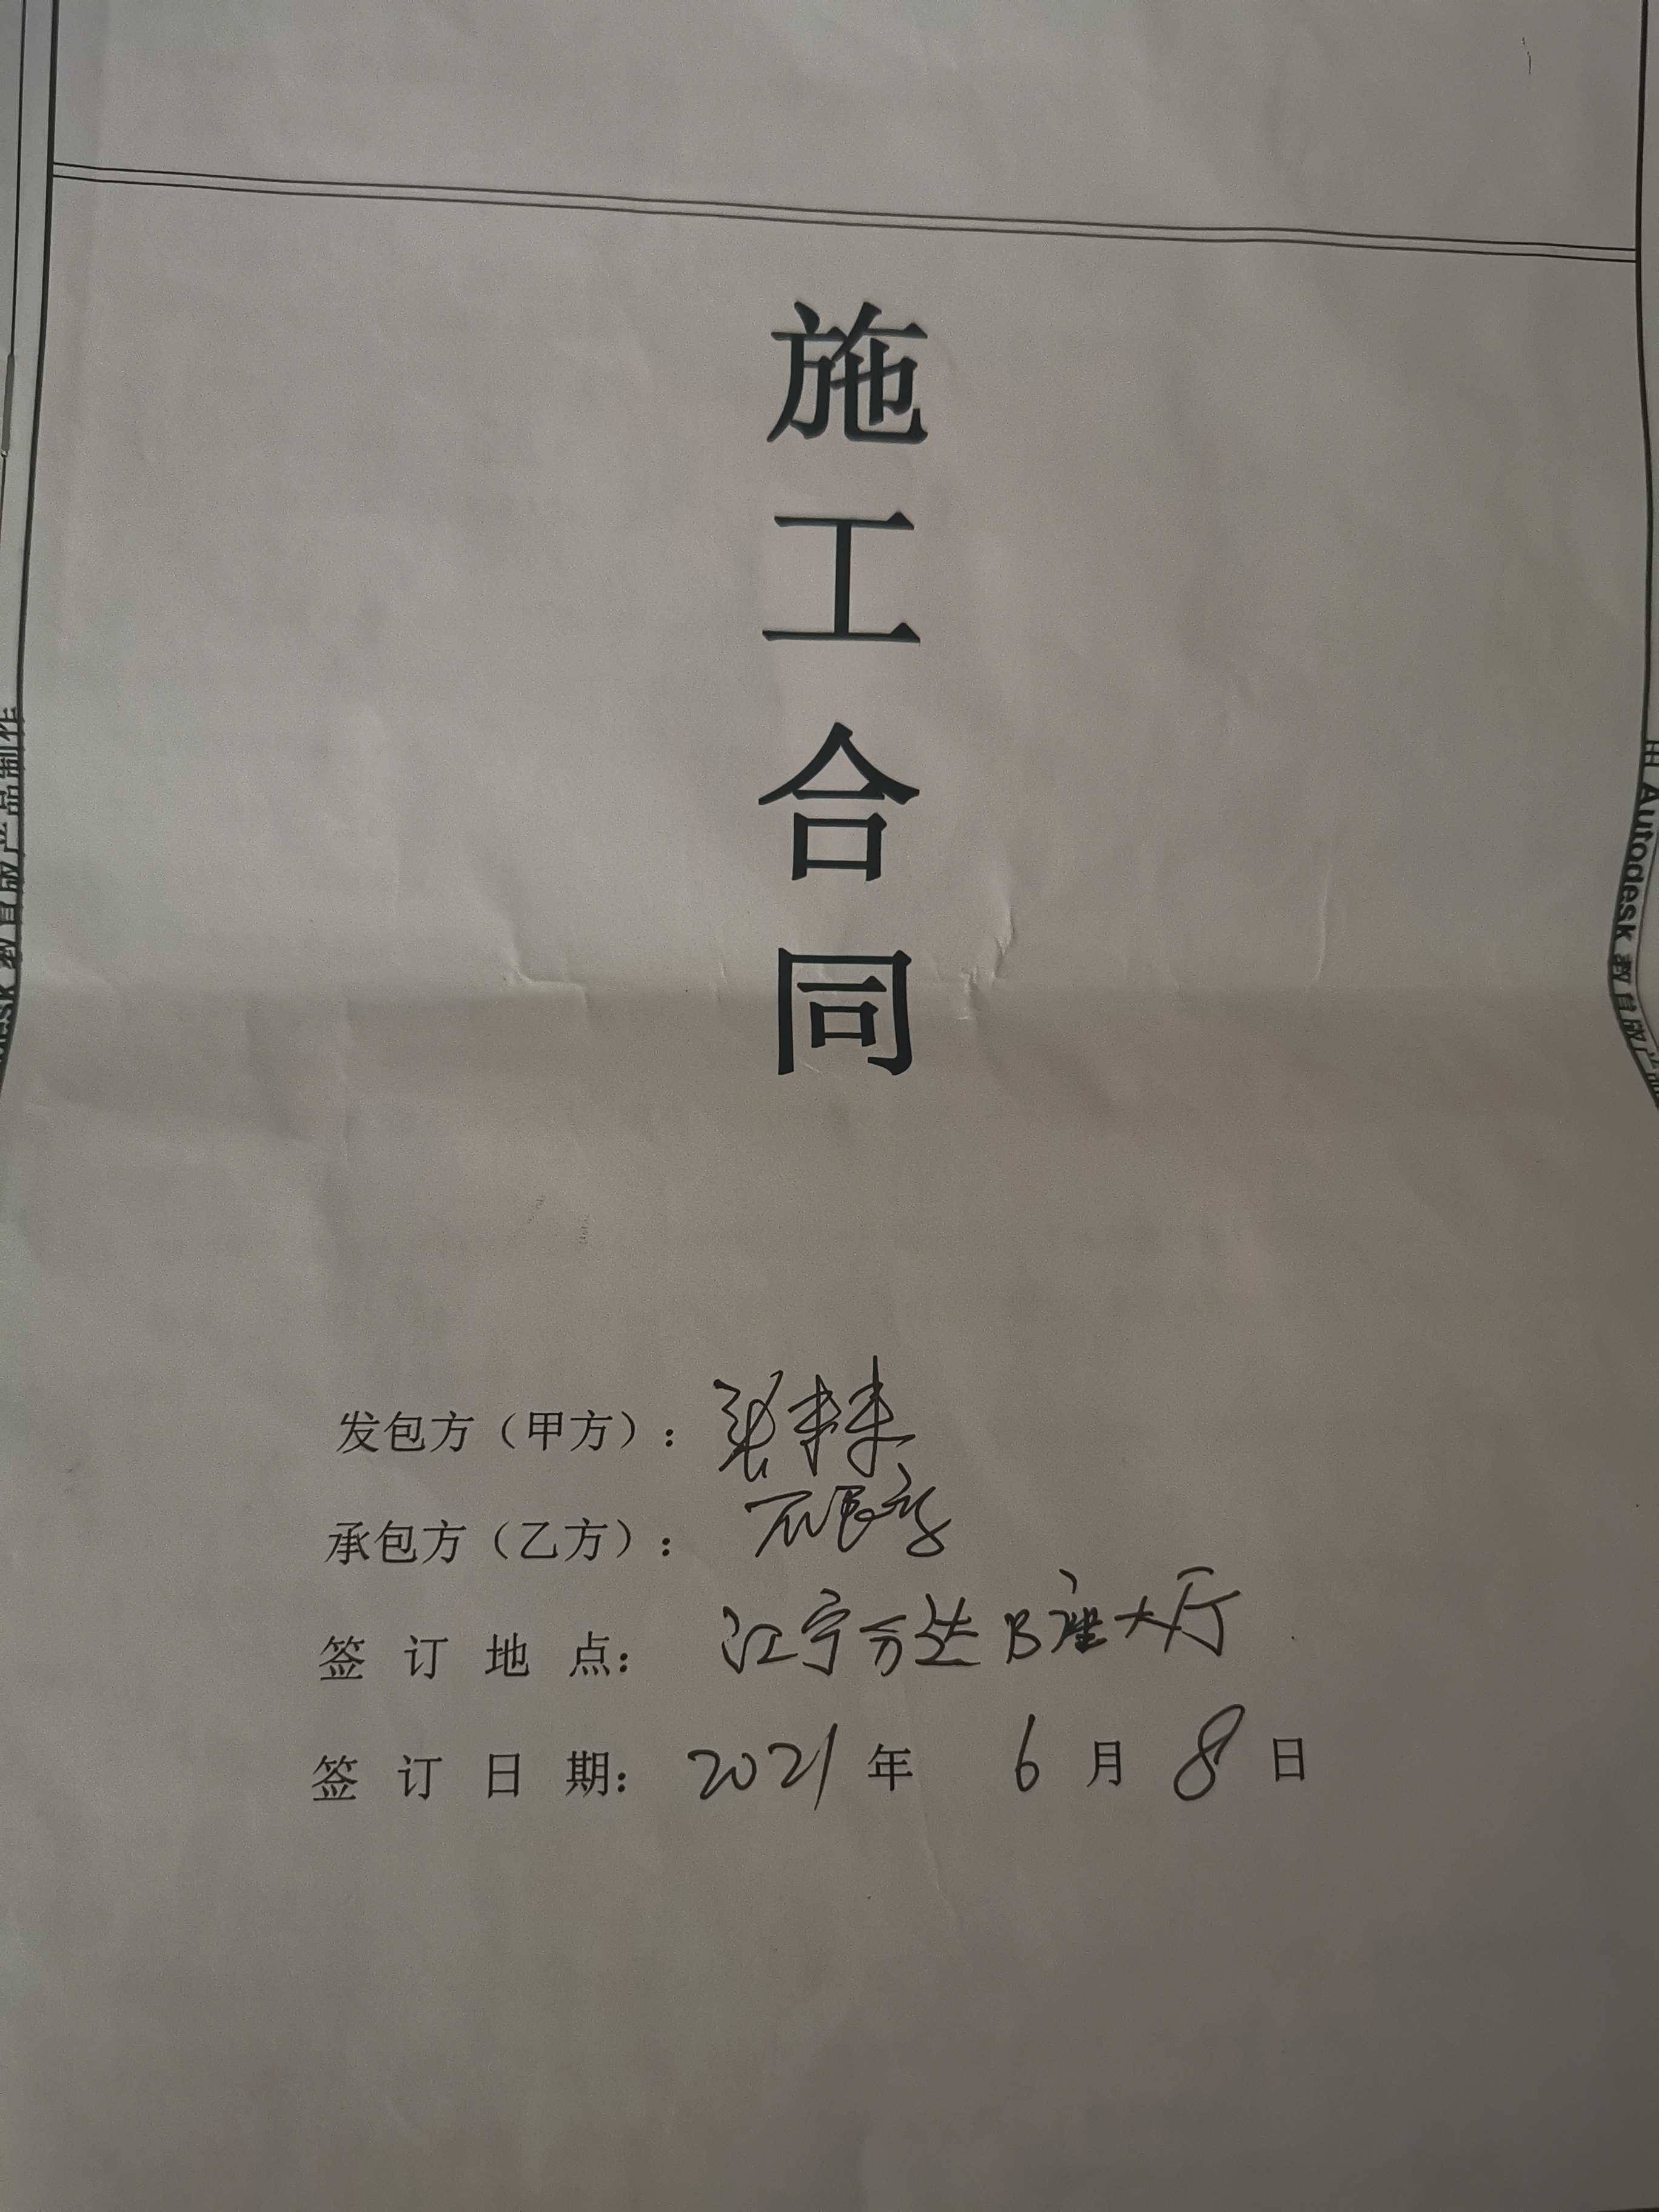 施
工
合
同
发包方（甲方）：张
承包方（乙方）：
签 订 地 点： 江宁万达B座大厅
签 订 日 期： 2021 年 6 月 8 日
由 Autodesk 教育版产品
esk 教育版产品制作